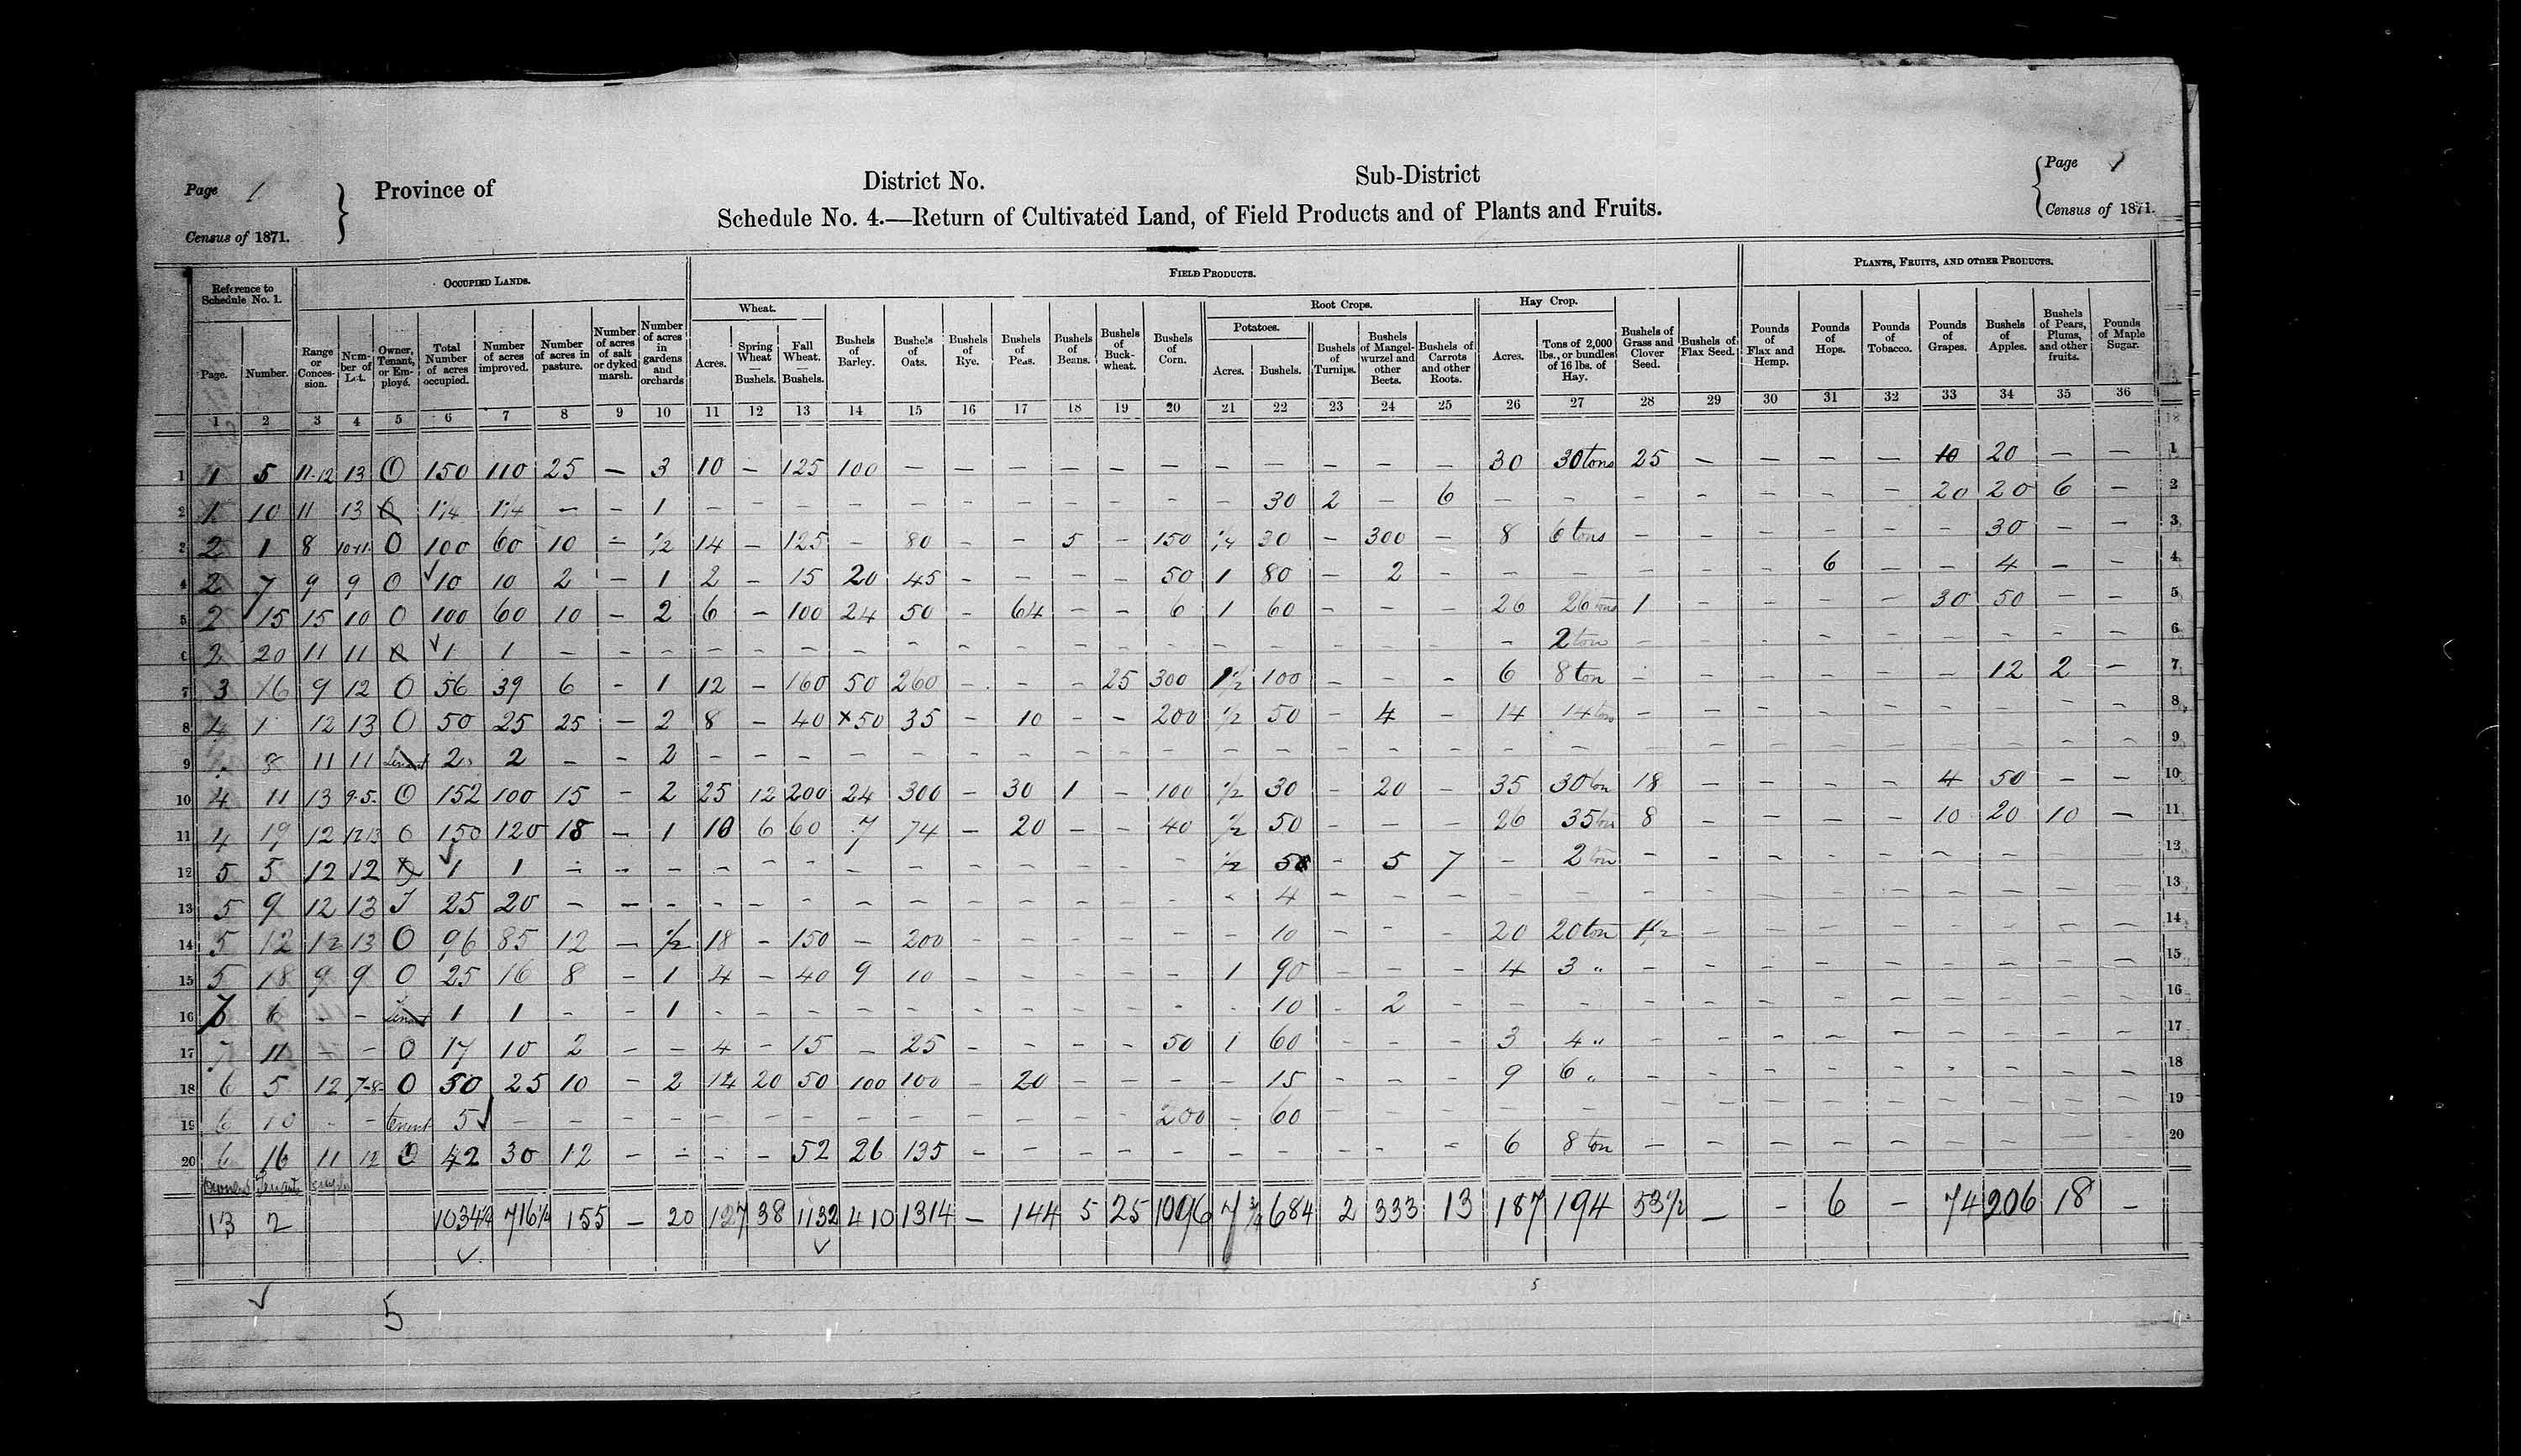 Page 1
Census of 1871.
Province of
District No.
Sub-District
Page 1
Census of 1871.
Schedule No. 4.—Return of Cultivated Land, of Field Products and of Plants and Fruits.
Reference to Schedule No. 1.
OCCUPIED LANDS.
FIELD PRODUCTS.
PLANTS, FRUITS, AND OTHER PRODUCTS.
Wheat.
Root Crops.
Potatoes.
Hay Crop.
Page.
Number.
Range or Conces-sion.
Num-ber of Lot.
Owner, Tenant, or Em-ployé.
Total Number of acres occupied.
Number of acres improved.
Number of acres in pasture.
Number of acres of salt or dyked marsh.
Number of acres in gardens and orchards
Acres.
Spring Wheat — Bushels.
Fall Wheat. — Bushels.
Bushels of Barley.
Bushels of Oats.
Bushels of Rye.
Bushels of Peas.
Bushels of Beans.
Bushels of Buck-wheat.
Bushels of Corn.
Acres.
Bushels.
Bushels of Turnips.
Bushels of Mangel-wurzel and other Beets.
Bushels of Carrots and other Roots.
Acres.
Tons of 2,000 lbs., or bundles of 16 lbs. of Hay.
Bushels of Grass and Clover Seed.
Bushels of Flax Seed.
Pounds of Flax and Hemp.
Pounds of Hops.
Pounds of Tobacco.
Pounds of Grapes.
Bushels of Apples.
Bushels of Pears, Plums, and other fruits.
Pounds of Maple Sugar.
1 2 3 4 5 6 7 8 9 10 11 12 13 14 15 16 17 18 19 20 21 22 23 24 25 26 27 28 29 30 31 32 33 34 35 36
1 1 5 11-12 13 O 150 110 25 — 3 10 — 125 100 — — — — — — — — — — — 30 30 tons 25 — — — — 10 20 — — 1
2 1 10 11 13 O 1 1/4 1 1/4 — — 1 — — — — — — — — — — — 30 2 — 6 — — — — — — — 20 20 6 — 2
3 2 1 8 10-11 O 100 60 10 — 1/2 14 — 125 — 80 — — 5 — 150 1/4 30 — 300 — 8 6 tons — — — — — — 30 — — 3
4 2 7 9 9 O 10 10 2 — 1 2 — 15 20 45 — — — — 50 1 80 — 2 — — — — — — 6 — — 4 — — 4
5 2 15 15 10 O 100 60 10 — 2 6 — 100 24 50 — 64 — — 6 1 60 — — — 26 26 tons 1 — — — — 30 50 — — 5
6 2 20 11 11 O 1 1 — — — — — — — — — — — — — — — — — — — 2 ton — — — — — — — — — 6
7 3 16 9 12 O 56 39 6 — 1 12 — 160 50 260 — — — 25 300 1 1/2 100 — — — 6 8 ton — — — — — — 12 2 — 7
8 4 1 12 13 O 50 25 25 — 2 8 — 40 x50 35 — 10 — — 200 1/2 50 — 4 — 14 14 tons — — — — — — — — — 8
9 8 11 11 Tenant 2 2 — — 2 — — — — — — — — — — — — — — — — — — — — — — — — — — 9
10 4 11 13 9-5 O 152 100 15 — 2 25 12 200 24 300 — 30 1 — 100 1/2 30 — 20 — 35 30 ton 18 — — — — 4 50 — — 10
11 4 19 12 12 13 O 150 120 18 — 1 10 6 60 7 74 — 20 — — 40 1/2 50 — — — 26 35 ton 8 — — — — 10 20 10 — 11
12 5 5 12 12 O 1 1 — — — — — — — — — — — — — 1/2 — 5 7 — 2 ton — — — — — — — — — 12
13 5 9 12 13 T 25 20 — — — — — — — — — — — — — — 4 — — — — — — — — — — — — — — 13
14 5 12 12 13 O 96 85 12 — 1/2 18 — 150 — 200 — — — — — — 10 — — — 20 20 ton 1 1/2 — — — — — — — — 14
15 5 18 9 9 O 25 16 8 — 1 4 — 40 9 10 — — — — — 1 90 — — — 4 3 " — — — — — — — — — 15
16 6 — — Tenant 1 1 — — 1 — — — — — — — — — — — 10 — 2 — — — — — — — — — — — — 16
17 7 11 — — O 17 10 2 — — 4 — 15 — 25 — — — — 50 1 60 — — — 3 4 " — — — — — — — — — 17
18 6 5 12 7-8 O 50 25 10 — 2 14 20 50 100 100 — 20 — — — — 15 — — — 9 6 " — — — — — — — — — 18
19 6 10 — — tenant 5 — — — — — — — — — — — — — 200 — 60 — — — — — — — — — — — — — — 19
20 6 16 11 12 O 42 30 12 — — — — 52 26 135 — — — — — — — — — — 6 8 ton — — — — — — — — — 20
Owners Tenants
13 2 1034 1/4 716 1/4 155 — 20 127 38 1132 410 1314 — 144 5 25 1096 7 3/4 684 2 333 13 187 194 53 1/2 — — 6 — 74 206 18 —
5
5